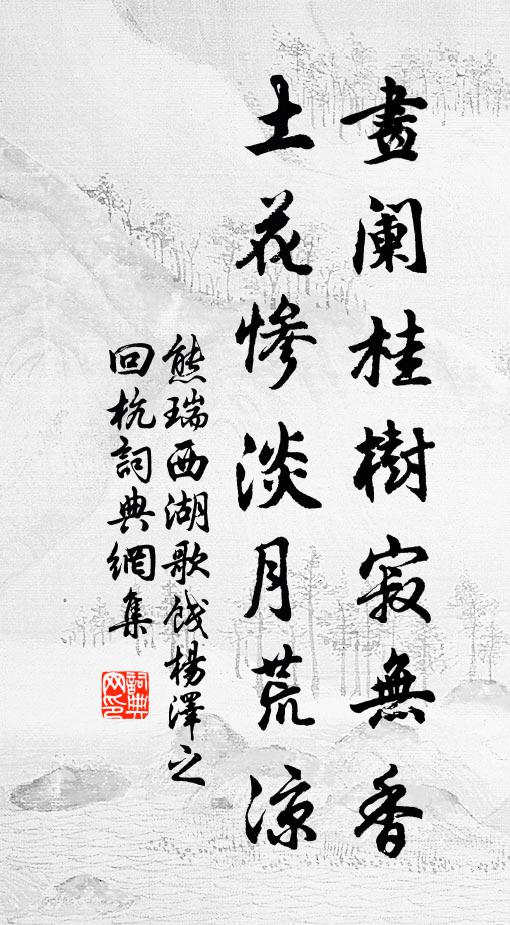 畫阑桂樹寂無香
土花慘淡月荒涼
熊瑞西湖歌餞楊澤之
回杭詞典網集
詞典网印